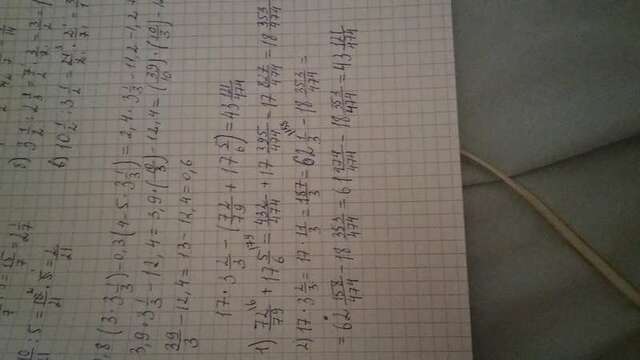 = 15/7 = 2 1/7
10/21 : 5 = 10/21 · 1/5 = 2/21
б) 3 1/2 : 2 1/3 = 7/2 · 3/7 = 3/2 =
в) 10 1/2 : 3 1/2 = 21/2 · 2/7 =
,8 (3 · 3 1/3) - 0,3 (4 - 5 · 3 1/3) = 2,4 · 3 1/3 - 11,2 - 1,2 +
3,9 · 3 1/3 - 12,4 = 3,9 · (10/3) - 12,4 = (39/10) · (10/3) - 12
39/3 - 12,4 = 13 - 12,4 = 0,6
17 · 3 2/3 - (72/79 + 17 5/6) = 43 121/474
1) 72/79 + 17 5/6 = 432/474 + 17 395/474 = 17 827/474 = 18 353/474
2) 17 · 3 2/3 = 17 · 11/3 = 187/3 = 62 1/3 - 18 353/474 =
= 62 158/474 - 18 353/474 = 61 474/474 - 18 353/474 = 43 121/474